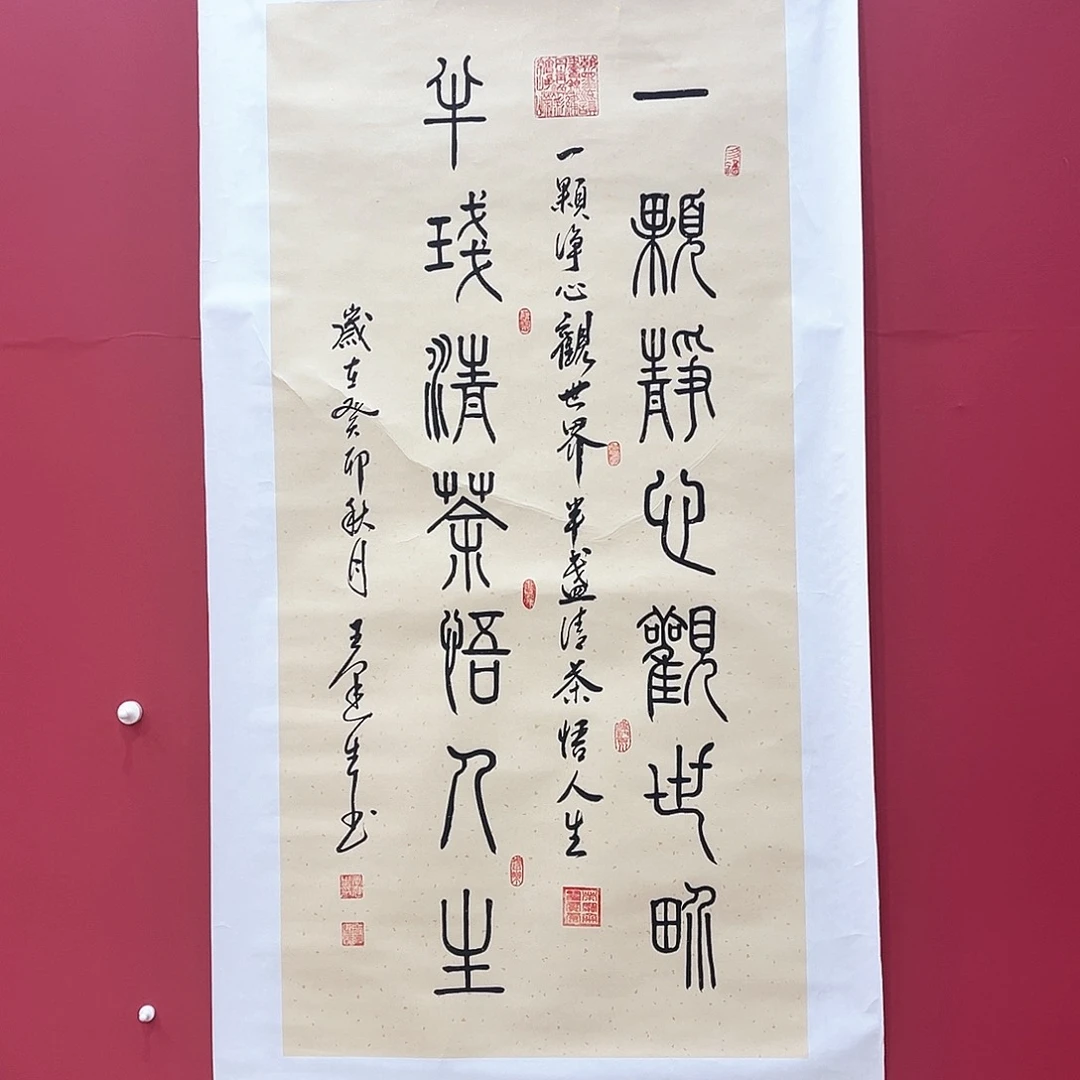 一顆靜心觀世畍
一顆淨心觀世界半盞清茶悟人生
半琖清茶悟人生
歲在癸卯秋月王生书